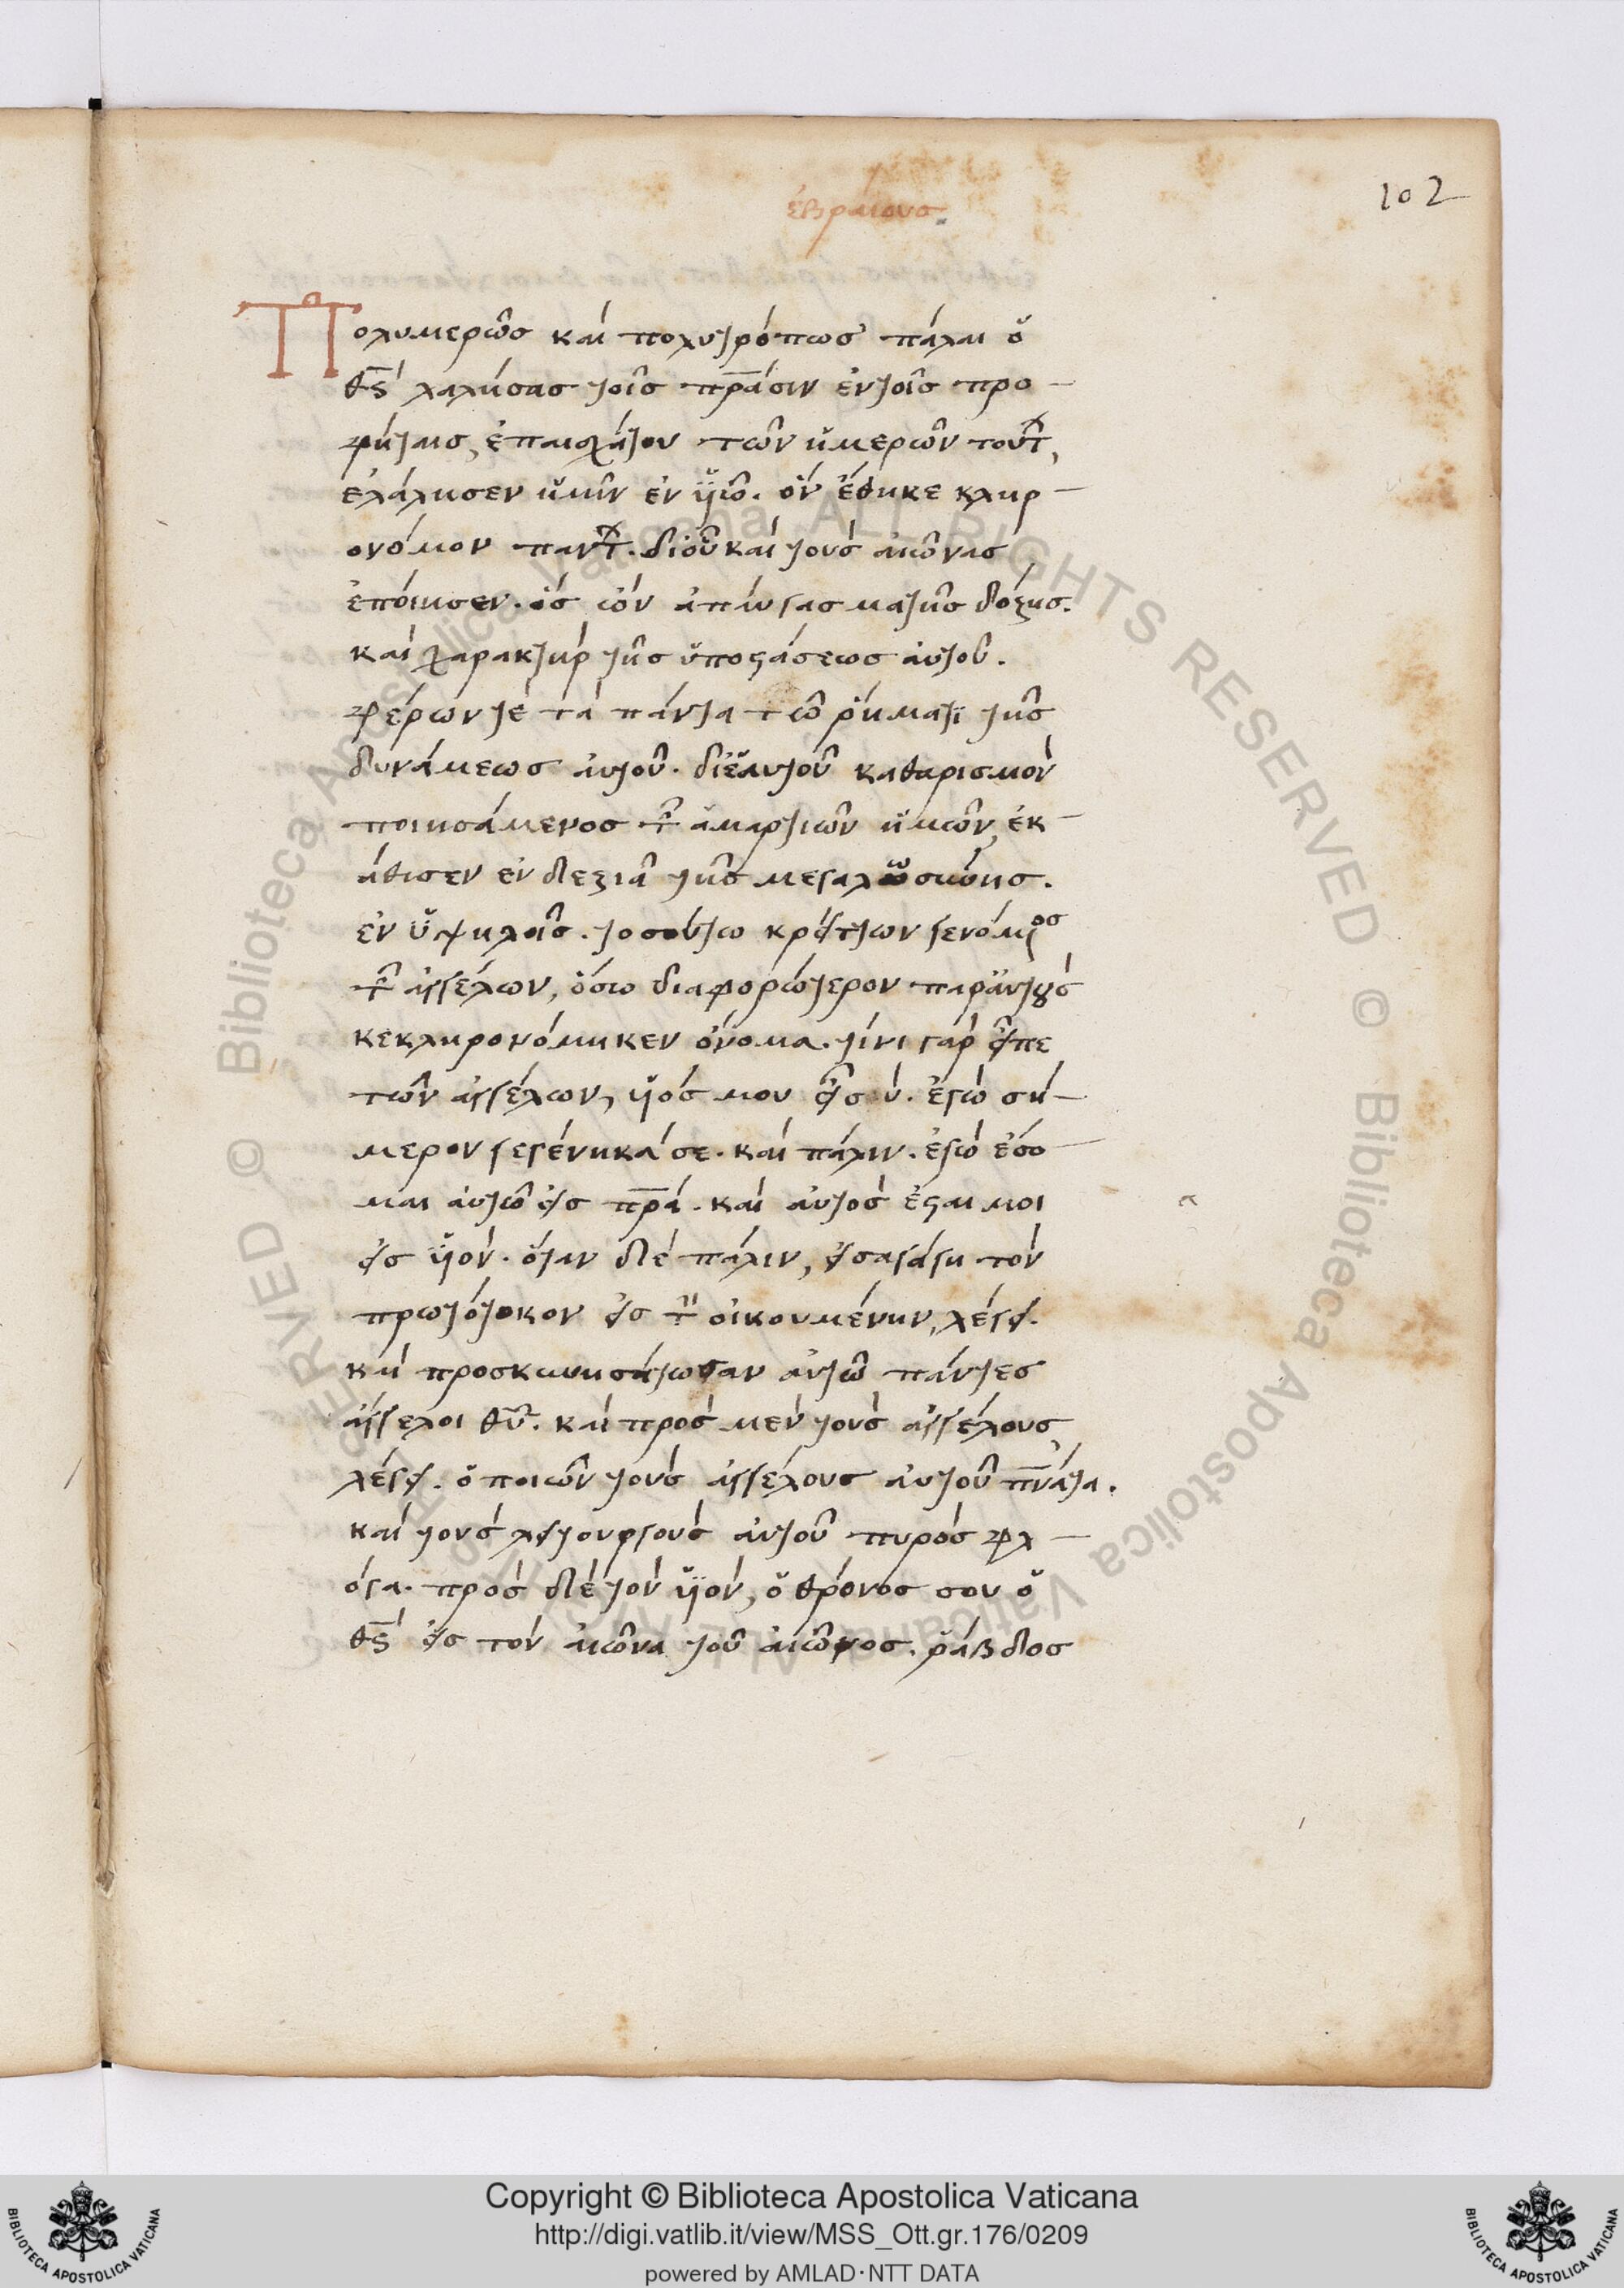 102
ἑβραίους.
Πολυμερῶς καὶ πολυτρόπως πάλαι ὁ
θ̅ς̅ λαλήσας τοῖς π̅ρ̅άσιν ἐν τοῖς προ-
φήταις, ἐπ' αἰσχάτου τῶν ἡμερῶν τούτ,
ἐλάλησεν ἡμῖν ἐν υἱῶ. ὃν ἔθηκε κληρ-
ονόμον παντ. δι' οὗ καὶ τοὺς αἰῶνας
ἐποίησεν. ὃς ὢν ἀπαύγασμα τῆς δόξης.
καὶ χαρακτὴρ τῆς ὑποστάσεως αὐτοῦ.
φέρων τὲ τὰ πάντα τῶ ῥήματι τῆς
δυνάμεως αὐτοῦ. δι' ἑαυτοῦ καθαρισμὸν
ποιησάμενος τ ἁμαρτιῶν ἡμῶν, ἐκ-
άθισεν ἐν δεξιᾶ τῆς μεγαλωσύνης.
ἐν ὑψηλοῖς. τοσούτω κρείττων γενόμ̅ος
τ ἀγγέλων, ὅσω διαφορώτερον παρ' αὐτοὺς
κεκληρονόμηκεν ὄνομα. τίνι γὰρ εἶπε
τῶν ἀγγέλων, υἱός μου εἶ σύ. ἐγὼ σή-
μερον γεγένηκά σε. καὶ πάλιν. ἐγὼ ἔσο-
μαι αὐτῶ εἰς π̅ρ̅α. καὶ αὐτὸς ἔσται μοι
εἰς υἱόν. ὅταν δὲ πάλιν, εἰσαγάγη τὸν
πρωτότοκον εἰς τ οἰκουμένην, λέγει.
καὶ προσκυνησάτωσαν αὐτῶ πάντες
ἄγγελοι θ̅υ̅. καὶ πρὸς μὲν τοὺς ἀγγέλους
λέγει. ὁ ποιῶν τοὺς ἀγγέλους αὐτοῦ π̅ν̅άτα.
καὶ τοὺς λειτουργοὺς αὐτοῦ πυρὸς φλ-
όγα. πρὸς δὲ τὸν υἱόν, ὁ θρόνος σου ὁ
θ̅ς̅ εἰς τὸν αἰῶνα τοῦ αἰῶνος. ῥάβδος
Copyright © Biblioteca Apostolica Vaticana
http://digi.vatlib.it/view/MSS_Ott.gr.176/0209
powered by AMLAD·NTT DATA
BIBLIOTECA APOSTOLICA VATICANA
BIBLIOTECA APOSTOLICA VATICANA
© Biblioteca Apostolica Vaticana ALL RIGHTS RESERVED
© Biblioteca Apostolica Vaticana ALL RIGHTS RESERVED